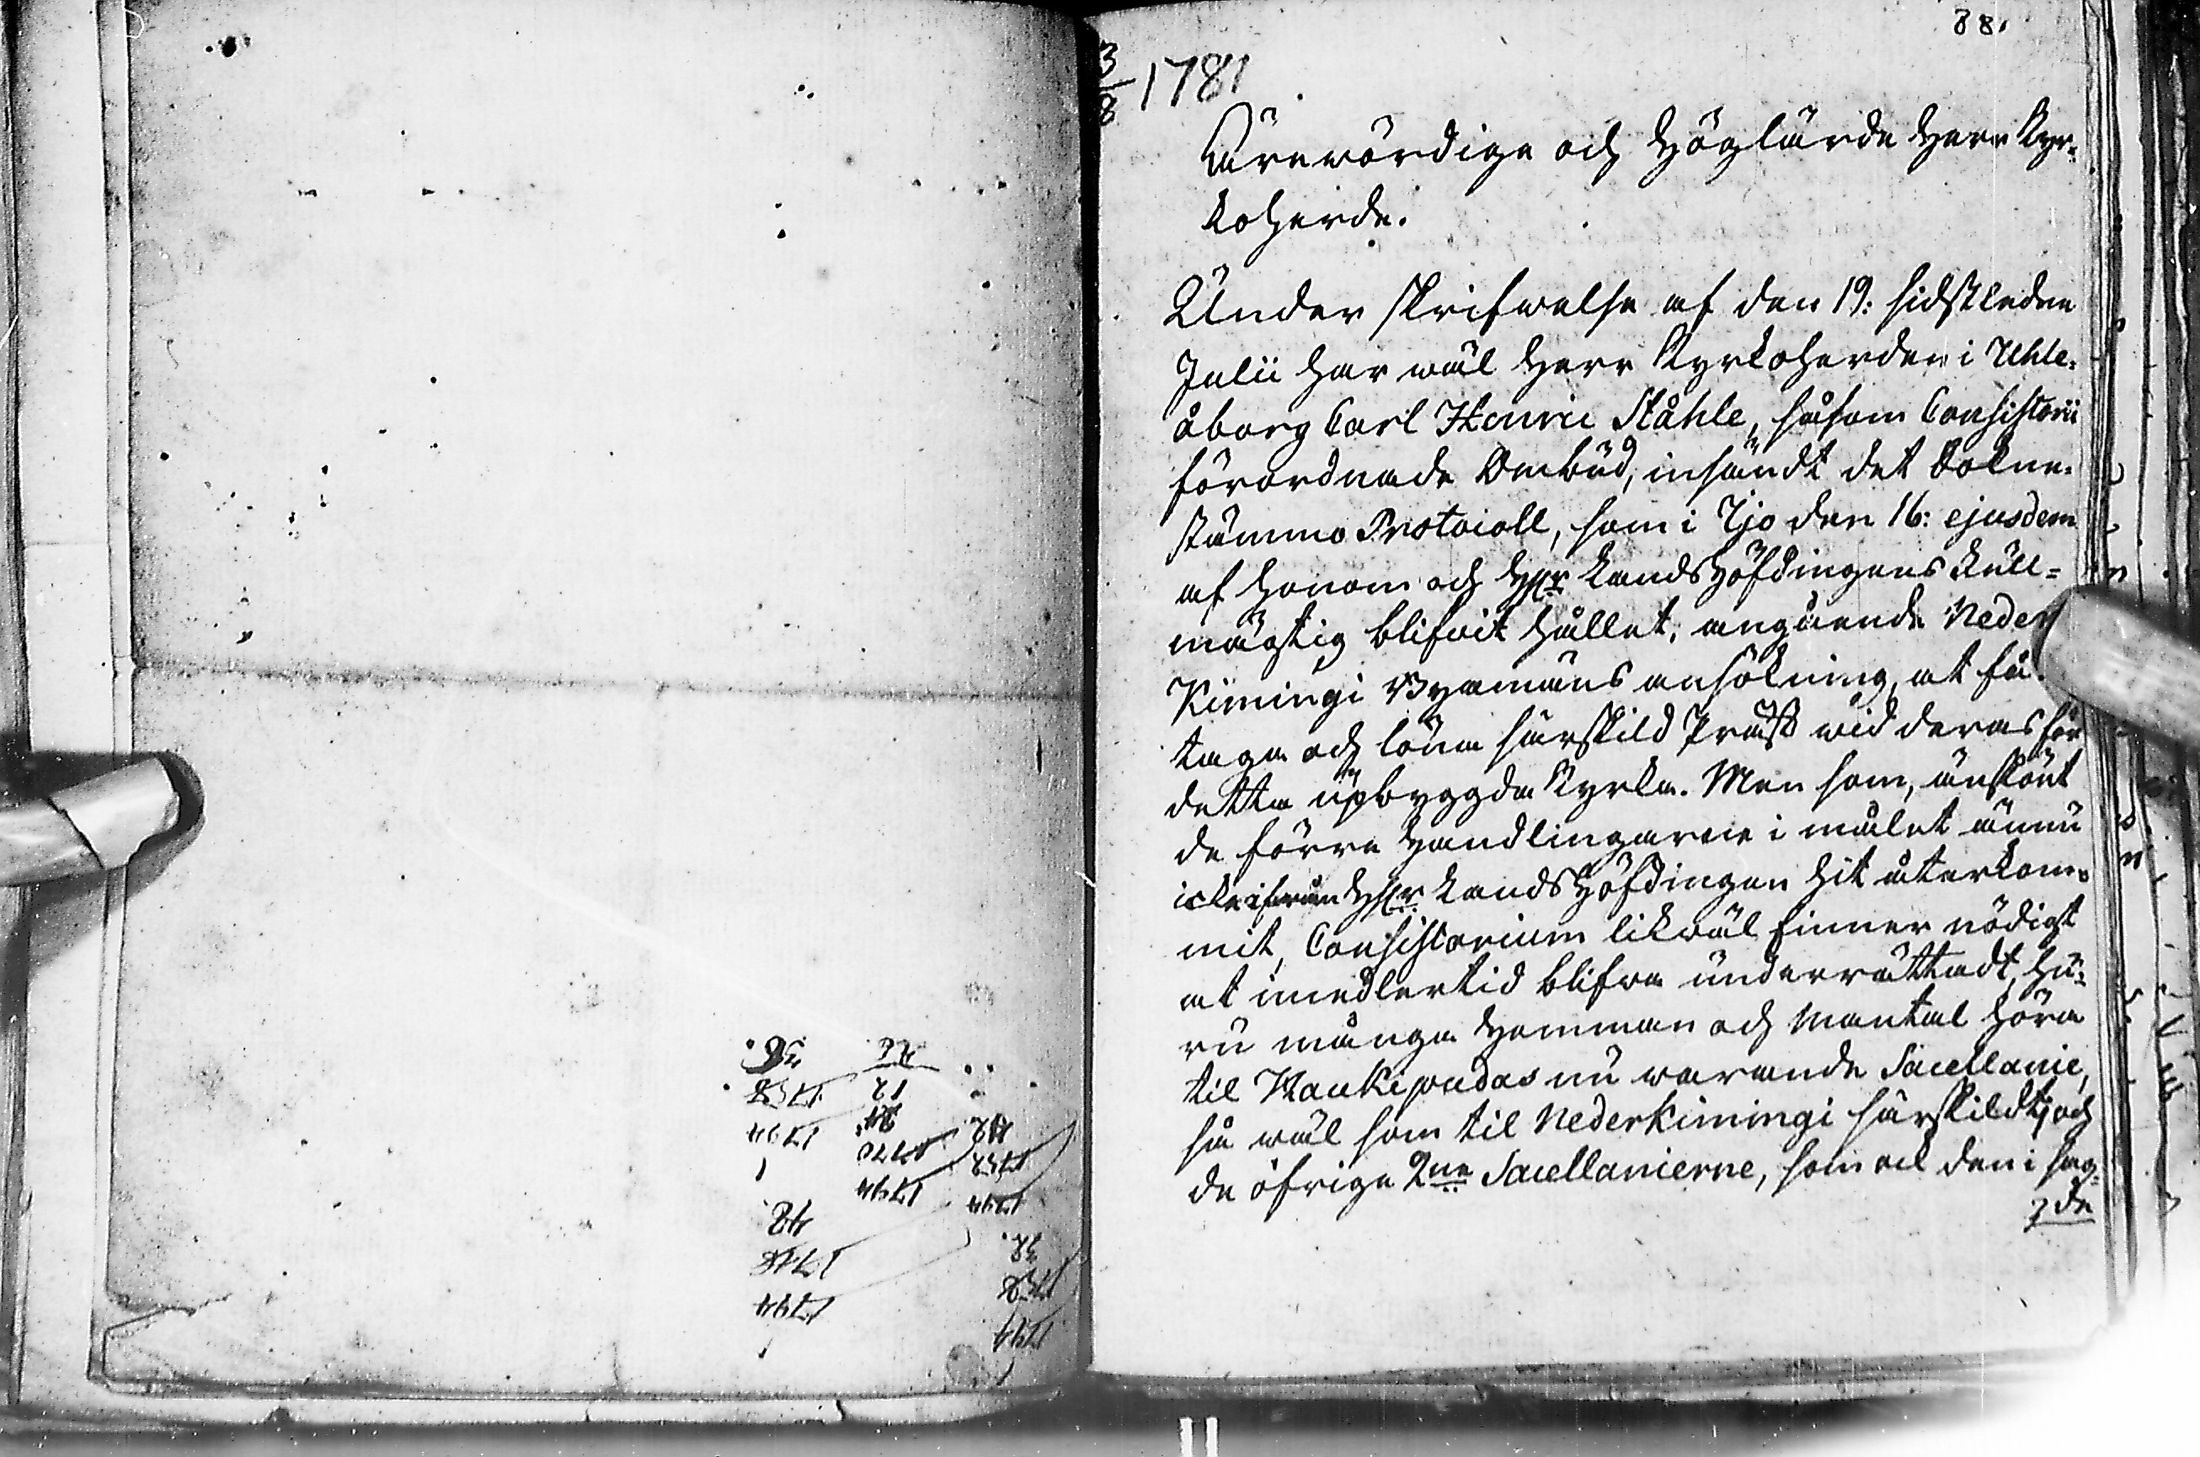 88.
3/8 1781
Ärewördige och Höglärde Herr Kyr-
koherde.
Under skrifwelse af den 19: sidstledne
Julii har wäl Herr Kyrkoherden i Uhle-
åborg Carl Henric Ståhle, såsom Consistorii
förordnade Ombud, insändt det Sokne-
stämmo Protocoll, som i Ijo den 16: ejusdem
af honom och Hr LandsHöfdingens Full-
mägtig blifvit hållet, angående Neder
Kimingi Byamäns ansökning, at få
taga och löna särskild Präst wid deras för
detta upbyggda Kyrka. Men som, änskönt
de förre Handlingarne i målet ännu
icke ifrån Hr LandsHöfdingen hit återkom-
mit, Consistorium likwäl finner nödigt
at imedlertid blifwa underrättadt, hu-
ru många Hemman och Mantal höra
til Haukipudas nu warande Sacellanie,
så wäl som til Nederkimingi särskildt, och
de öfrige 2ne Sacellanierne, som ock den i sag-
de
1794
1794
1794
1794
1794
48
42
12